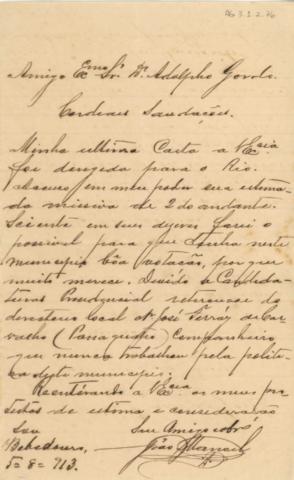 AG 3.1.2.76
Amigo Exmo Sr. Dr. Adolpho Gordo.
Cordeaes Saudações.
Minha ultima Carta a V Excia
foi deregida para o Rio.
em meu poder sua estima-
da missiva de 2 do andante.
Sciente em seus dizeres farei o
possivel para que tenha neste
municipio bôa votacão, por que
muito merece. Devido a Candeda-
tura refereuse do
directorio local o Dr José Ferráz de Car-
valho ( ) Companheiro
que nunca trabalhou pela politi-
ca deste municipio.
Reenterando a V Excia os meus pro-
testos de estima e consederação
Sou Seu Amigo obrdo
Bebedouro, João Manoel
5= 8= 913.